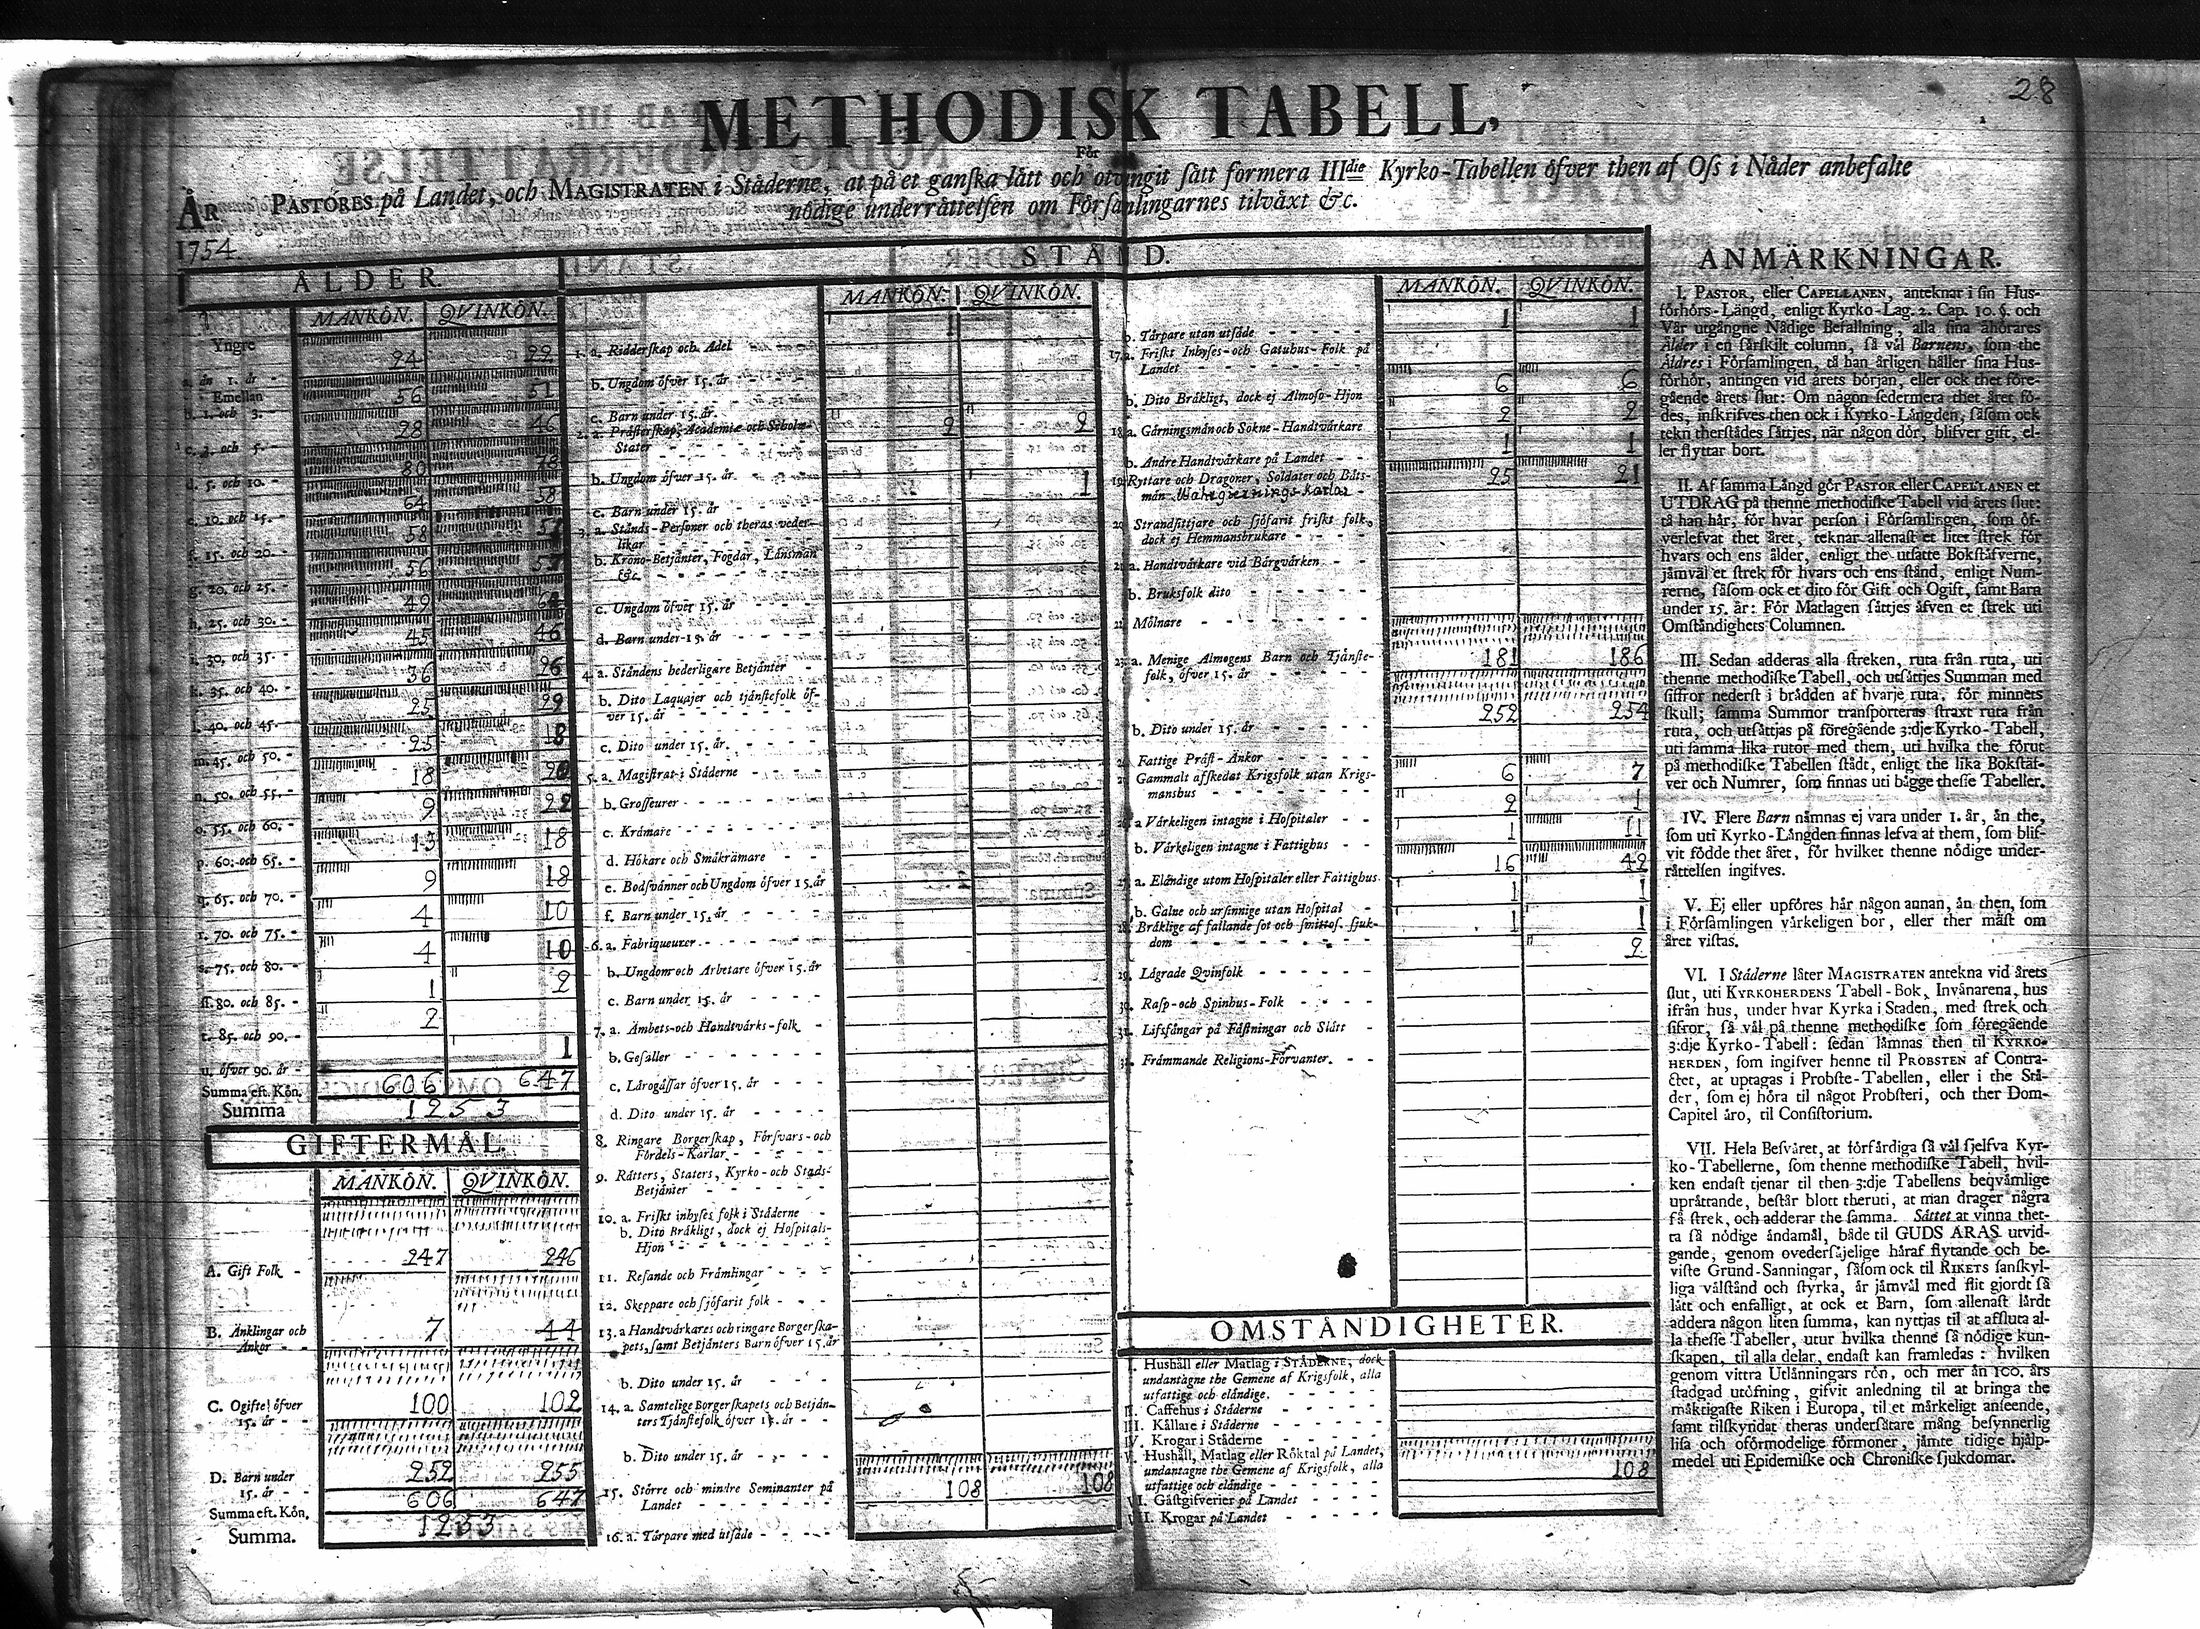 28
METHODISK TABELL,
För
ÅR PASTORES på Landet, och MAGISTRATEN i Städerne, at på et ganska lätt och otvungit sätt formera IIIdie Kyrko-Tabellen öfver then af Oss i Nåder anbefalte
1754. nödige underrättelsen om Församlingarnes tilväxt &c.
ÅLDER.
MANKÖN. QVINKÖN.
Yngre
a. än 1. år - 24 22
Emellan
b. 1. och 3. - 56 51
c. 3. och 5. - 28 46
d. 5. och 10. - 80 78
e. 10. och 15. - 64 58
f. 15. och 20. - 58
g. 20. och 25. - 56
h. 25. och 30. - 49
i. 30. och 35. - 45 46
k. 35. och 40. - 36 26
l. 40. och 45. - 25 29
m. 45. och 50. - 25 18
n. 50. och 55. - 18 20
o. 55. och 60. - 9 22
p. 60. och 65. - 13 18
q. 65. och 70. - 9 18
r. 70. och 75. - 4 10
s. 75. och 80. - 4 10
ss. 80. och 85. - 1 2
t. 85. och 90. - 2
u. öfver 90. år - 1
Summa eft. Kön. 606 647
Summa 1253
GIFTERMÅL.
MANKÖN. QVINKÖN.
A. Gift Folk - 247 246
B. Änklingar och
Änkor - - 7 44
C. Ogifte öfver
15. år - - 100 102
D. Barn under
15. år - - 252 255
Summa eft. Kön. 606 647
Summa. 1253
STÅND.
MANKÖN. QVINKÖN.
1. a. Ridderskap och Adel 1
b. Ungdom öfver 15. år - - - -
c. Barn under 15. år.
2. a. Prästerskap, Academiæ och Schole-
Stater - - - - 2 2
b. Ungdom öfver 15. år - - - -
c. Barn under 15. år - - - 1
3. a. Stånds-Personer och theras veder-
likar - - - -
b. Krono-Betjänter, Fogdar, Länsmän
&c. - - - -
c. Ungdom öfver 15. år - - - -
d. Barn under 15. år - - - -
4. a. Ståndens hederligare Betjänter -
b. Dito Laquajer och tjänstefolk öf-
ver 15. år - - - -
c. Dito under 15. år. - - - -
5. a. Magistrat i Städerne - - - -
b. Grosseurer - - - -
c. Krämare - - - -
d. Hökare och Småkrämare - -
e. Bodsvänner och Ungdom öfver 15. år
f. Barn under 15. år - - - -
6. a. Fabriqueurer - - - -
b. Ungdom och Arbetare öfver 15. år
c. Barn under 15. år - - - -
7. a. Ämbets-och Handtvärks-folk -
b. Gesäller - - - -
c. Lärogåssar öfver 15. år - - -
d. Dito under 15. år - - - -
8. Ringare Borgerskap, Försvars-och
Fördels-Karlar - - - -
9. Rätters, Staters, Kyrko-och Stads-
Betjänter - - - -
10. a. Friskt inhyses folk i Städerne -
b. Dito Bräkligt, dock ej Hospitals-
Hjon - - - -
11. Resande och Främlingar - - -
12. Skeppare och sjöfarit folk - - -
13. a Handtvärkares och ringare Borgerska-
pets, samt Betjänters Barn öfver 15. år
b. Dito under 15. år - - - -
14. a. Samtelige Borgerskapets och Betjän-
ters Tjänstefolk öfver 15. år - -
b. Dito under 15. år - - - -
15. Större och mindre Heminanter på
Landet - - - - 108 108
16. a. Torpare med utsäde - - - -
MANKÖN. QVINKÖN.
b. Torpare utan utsäde - - - - 1 1
17. a. Friskt Inhyses-och Gatuhus-Folk på
Landet - - - - 6 6
b. Dito Bräkligt, dock ej Almoso-Hjon 2 2
18. a. Gärningsmän och Sokne-Handtvärkare 1 1
b. Andre Handtvärkare på Landet - - 25 21
19. Ryttare och Dragoner, Soldater och Båts-
män
20. Strandsittjare och sjöfarit friskt folk,
dock ej Hemmansbrukare - - -
21. a. Handtvärkare vid Bärgvärken - -
b. Bruksfolk dito - - - -
22. Mölnare - - - -
23. a. Menige Almogens Barn och Tjänste-
folk, öfver 15. år - - - - 181 186
b. Dito under 15. år - - - - 252 254
24. Fattige Präst-Änkor - - - -
25. Gammalt afskedat Krigsfolk utan Krigs-
manshus - - - - 6 7
26. a Värkeligen intagne i Hospitaler - - 2 1
b. Värkeligen intagne i Fattighus - - 1 11
27. a. Eländige utom Hospitaler eller Fattighus 16 42
b. Galne och ursinnige utan Hospital - 1 1
28. Bräklige af fallande sot och smittos. sjuk-
dom - - - - 1 1
29. Lägrade Qvinfolk - - - - 2
30. Rasp-och Spinhus-Folk - - - -
31. Lifsfångar på Fästningar och Slått -
32. Främmande Religions-Förvanter. - -
OMSTÄNDIGHETER.
I. Hushåll eller Matlag i STÄDERNE, dock
undantagne the Gemene af Krigsfolk, alla
utfattige och eländige. - - - -
II. Caffehus i Städerne - - - -
III. Källare i Städerne - - - -
IV. Krogar i Städerne - - - -
V. Hushåll, Matlag eller Röktal på Landet,
undantagne the Gemene af Krigsfolk, alla
utfattige och eländige - - - - 108
VI. Gästgifverier på Landet - - - -
VII. Krogar på Landet - - - -
ANMÄRKNINGAR.
I. PASTOR, eller CAPELLANEN, anteknar i sin Hus-
förhörs-Längd, enligt Kyrko-Lag. 2. Cap. 10. §. och
Vår utgångne Nådige Befallning, alla sina åhörares
Ålder i en särskilt column, så väl Barnens, som the
Äldres i Församlingen, tå han årligen håller sina Hus-
förhör, antingen vid årets början, eller ock thet före-
gående årets slut: Om någon sedermera thet året fö-
des, inskrifves then ock i Kyrko-Längden, såsom ock
tekn therstädes sättjes, när någon dör, blifver gift, el-
ler flyttar bort.
II. Af samma Längd gör PASTOR eller CAPELLANEN et
UTDRAG på thenne methodiske Tabell vid årets slut:
tå han här, för hvar person i Församlingen, som öf-
verlefvat thet året, teknar allenast et litet strek för
hvars och ens ålder, enligt the utsatte Bokstäfverne,
jämväl et strek för hvars och ens stånd, enligt Num-
rerne, såsom ock et dito för Gift och Ogift, samt Barn
under 15. år: För Matlagen sättjes äfven et strek uti
Omständighets Columnen.
III. Sedan adderas alla streken, ruta från ruta, uti
thenne methodiske Tabell, och utsättjes Summan med
siffror nederst i brädden af hvarje ruta, för minnets
skull; samma Summor transporteras straxt ruta från
ruta, och utsättjas på föregående 3:dje Kyrko-Tabell,
uti samma lika rutor med them, uti hvilka the förut
på methodiske Tabellen städt, enligt the lika Bokstäf-
ver och Numrer, som finnas uti bägge thesse Tabeller.
IV. Flere Barn nämnas ej vara under 1. år, än the,
som uti Kyrko-Längden finnas lefva at them, som blif-
vit födde thet året, för hvilket thenne nödige under-
rättelsen ingifves.
V. Ej eller upföres här någon annan, än then, som
i Församlingen värkeligen bor, eller ther mäst om
året vistas.
VI. I Städerne låter MAGISTRATEN antekna vid årets
slut, uti KYRKOHERDENS Tabell-Bok, Invånarena, hus
ifrån hus, under hvar Kyrka i Staden, med strek och
sifror, så väl på thenne methodiske som föregående
3:dje Kyrko-Tabell: sedan lämnas then til KYRKO-
HERDEN, som ingifver henne til PROBSTEN af Contra-
ctet, at uptagas i Probste-Tabellen, eller i the Stä-
der, som ej höra til något Probsteri, och ther Dom-
Capitel äro, til Consistorium.
VII. Hela Besväret, at förfärdiga så väl sjelfva Kyr-
ko-Tabellerne, som thenne methodiske Tabell, hvil-
ken endast tjenar til then 3:dje Tabellens beqvämlige
uprättande, består blott theruti, at man drager några
få strek, och adderar the samma. Sättet at vinna thet-
ta så nödige ändamål, både til GUDS ÄRAS utvid-
gande, genom ovedersäjelige häraf flytande och be-
viste Grund-Sanningar, såsom ock til RIKETS sanskyl-
liga välstånd och styrka, är jämväl med flit gjordt så
lätt och enfalligt, at ock et Barn, som allenast lärdt
addera någon liten summa, kan nyttjas til at afsluta al-
la thesse Tabeller, utur hvilka thenne så nödige kun-
skapen, til alla delar, endast kan framledas: hvilken
genom vittra Utlänningars rön, och mer än 100. års
stadgad utöfning, gifvit anledning til at bringa the
mäktigaste Riken i Europa, til et märkeligt anseende,
samt tilskyndat theras undersåtare mång besynnerlig
lisa och oförmodelige förmoner, jämte tidige hjälp-
medel uti Epidemiske och Chroniske sjukdomar.